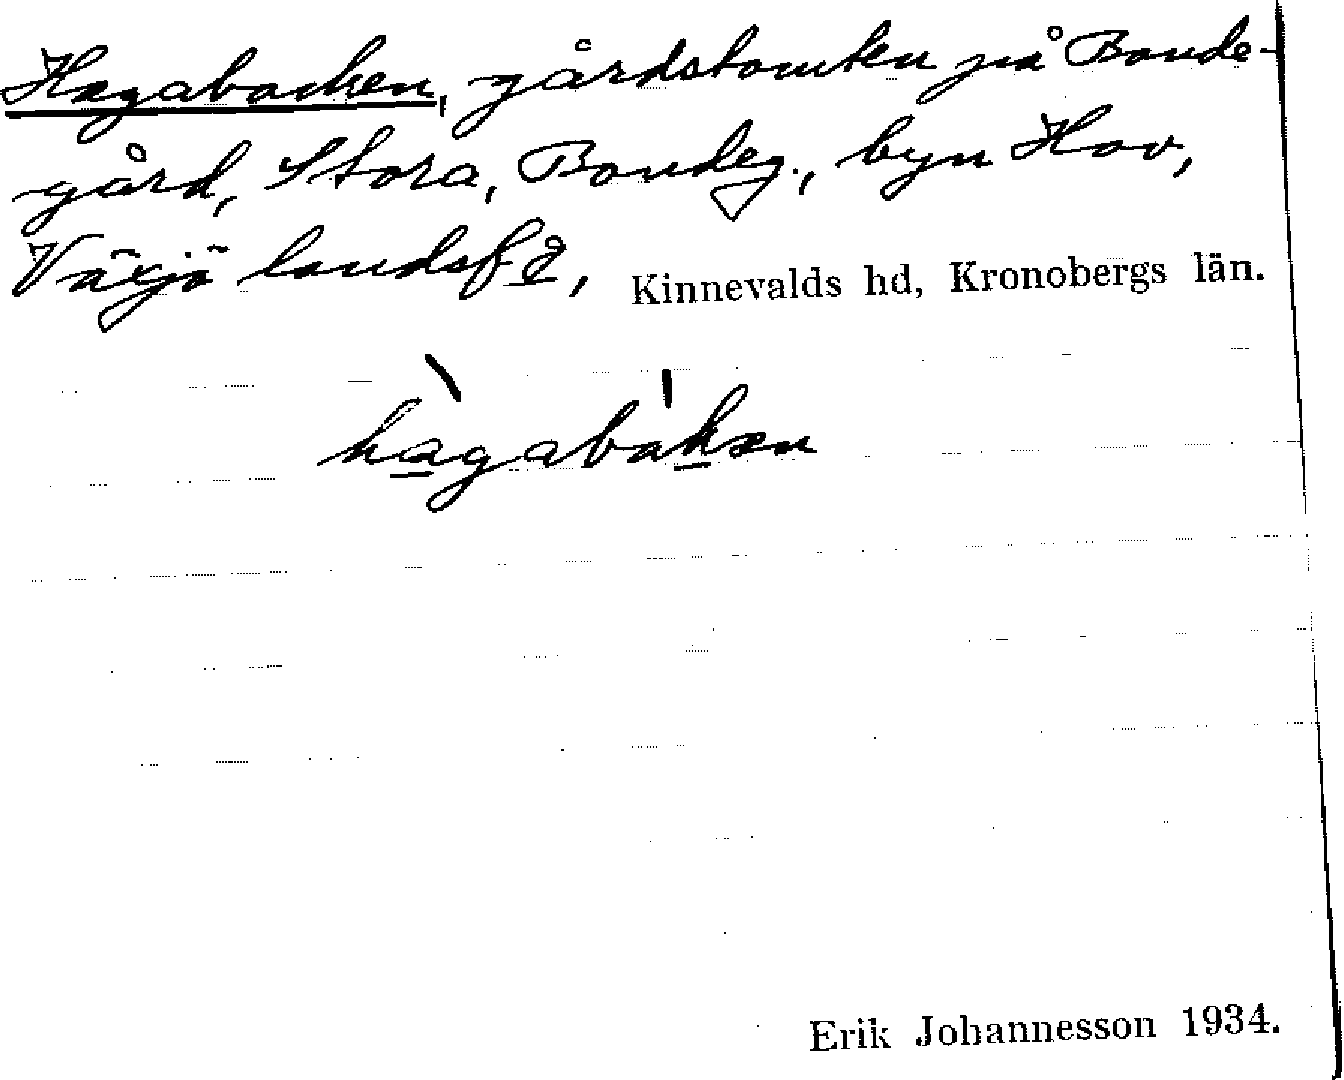 Hagabacken, gårdstomten på Bonde-
gård, Stora, Bondeg., byn Hov,
Växjö landsf2,
Kinnevalds hd, Kronobergs län.
hagabakən
Erik Johannesson 1934.